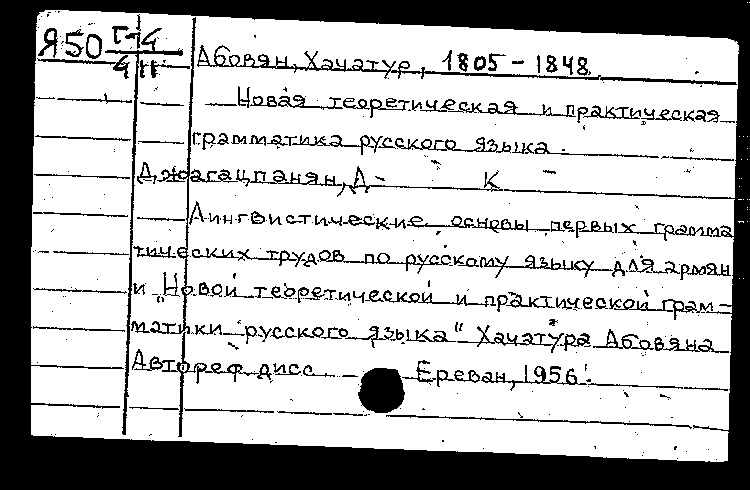 Я50 Г-4
4 п
Абовян, Хачатур, 1805 - 1848
Новая теоретическая и практическая
грамматика русского языка.
Джагацпанян, Д- К
Лингвистические основы первых грамма
тических трудов по русскому языку для армян
и "Новой теоретической и практической грам-
матики русского языка" Хачатура Абовяна
Автореф. дисс. - Ереван, 1956.